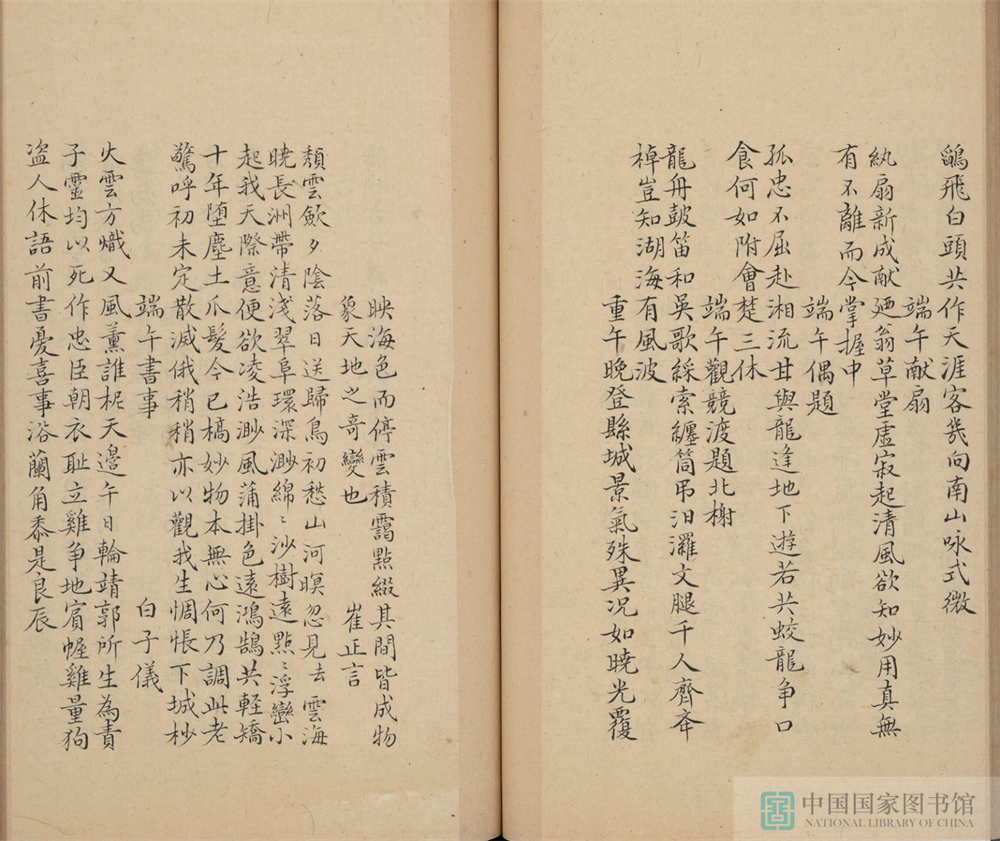 鷗飛白頭共作天涯客幾向南山咏式微
端午献扇
紈扇新成献廼翁草堂虛寂起清風欲知妙用真無
有不離而今掌握中
端午偶題
孤忠不屈赴湘流甘與龍逢地下遊若共蛟龍争口
食何如附會楚三休
端午觀競渡題北榭
龍舟皷笛和吳歌綵索纏筒吊汨灑文腿千人齊奔
棹豈知湖海有風波
重午晚登縣城景氣殊異况如曉光覆
映海色而停雲積靄點綴其間皆成物
象天地之奇變也 崔正言
頽雲歛夕陰落日送歸鳥初愁山河暝忽見去雲海
曉長洲帶清淺翠阜環深渺綿〻沙樹遠點〻浮巒小
起我天際意便欲凌浩渺風蒲掛色遠鴻鵠共輕矯
十年堕塵土爪髮今已槁妙物本無心何乃調此老
驚呼初未定散滅俄稍稍亦以觀我生惆悵下城杪
端午書事 白子儀
火雲方熾又風薰誰柅天邊午日輪靖郭所生為責
子靈均以死作忠臣朝衣耻立雞争地賔幄雞量狗
盗人休語前書憂喜事浴蘭角黍是良辰
中国国家图书馆
NATIONAL LIBRARY OF CHINA